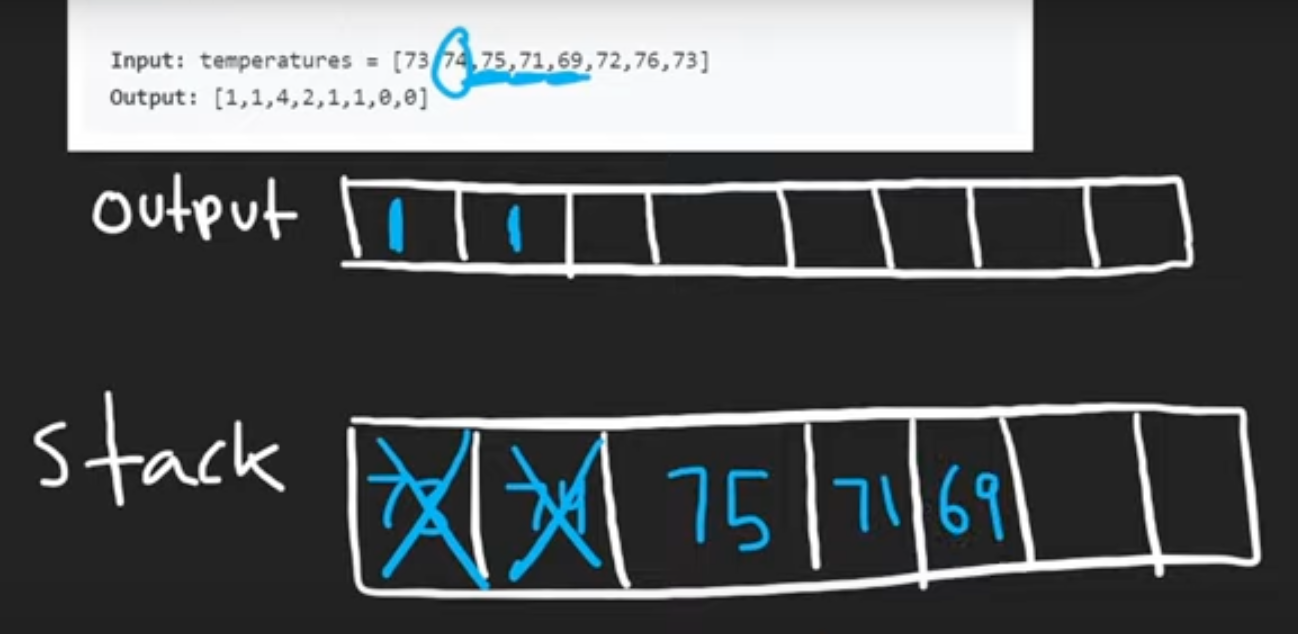 Input: temperatures = [73,74,75,71,69,72,76,73]
Output: [1,1,4,2,1,1,0,0]
output 1 1
Stack 73 74 75 71 69